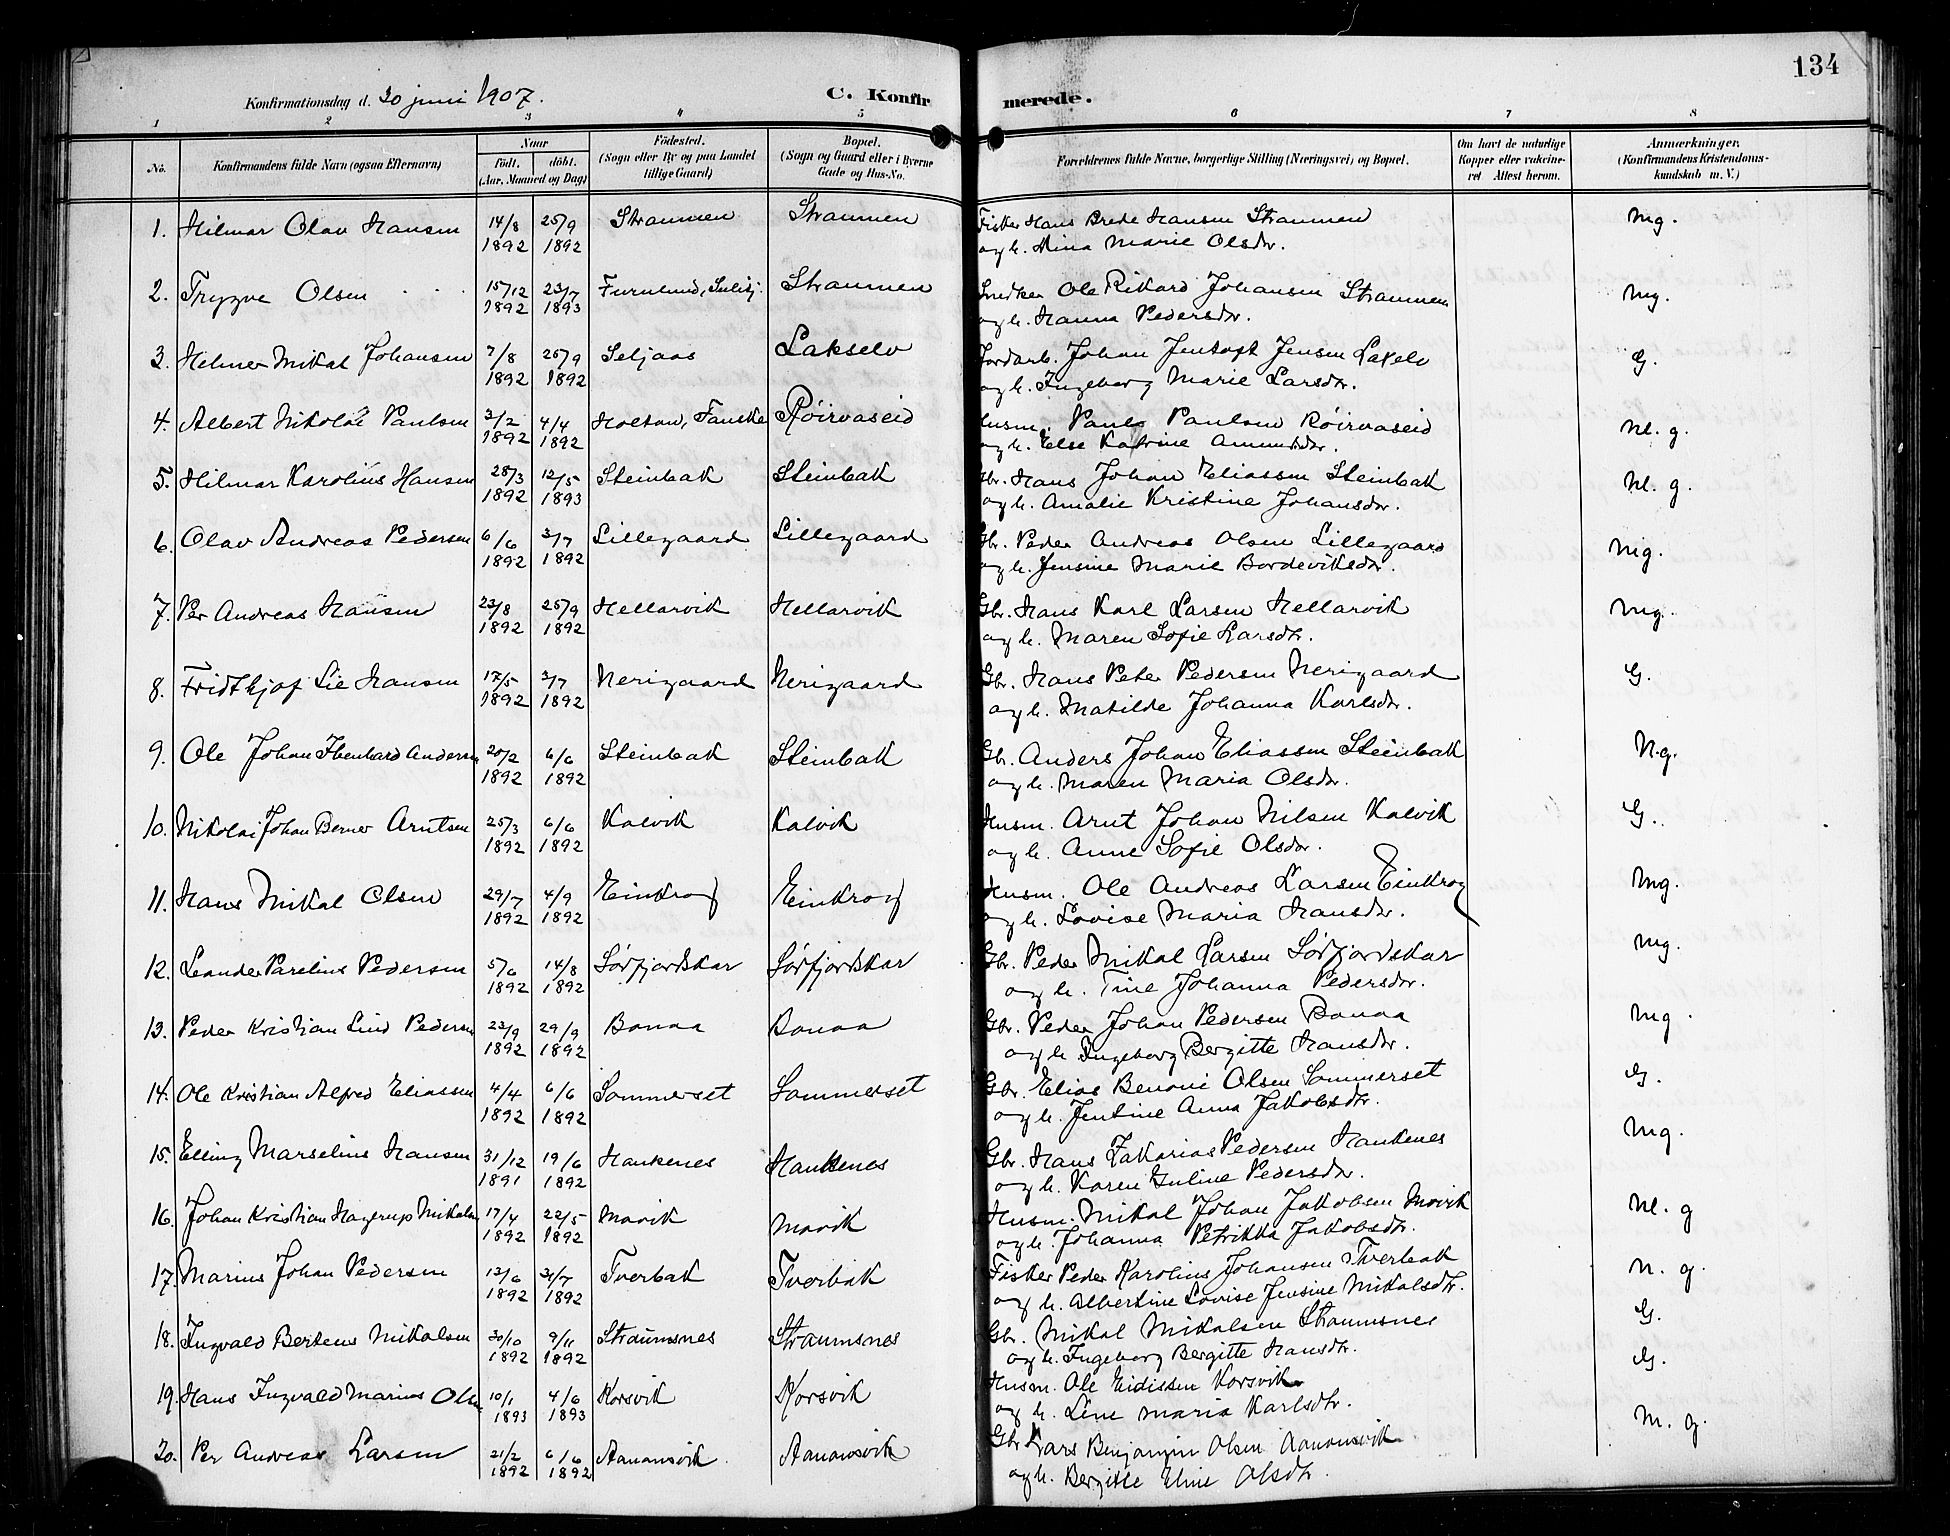 134
Konfirmationsdag d. 30 juni 1907.
C. Konfirmerede.
1 2 3 4 5 6 7 8
No. Konfirmandens fulde Navn (ogsaa Efternavn) Naar födt. döbt. (Aar, Maaned og Dag) Födested. (Sogn eller By og paa Landet tillige Gaard) Bopæl. (Sogn og Gaard eller i Byerne Gade og Hus-No. Forældrenes fulde Navne, borgerlige Stilling (Næringsvei) og Bopæl. Om havt de naturlige Kopper eller vaccineret Attest herom. Anmærkninger. (Konfirmandens Kristendomskundskab m. V.)
1. Hilmar Olav Hansen 14/8 1892 25/9 1892 Straumen Straumen Fisker Hans Brede Hansen Straumen Mg.
og h. Mina Marie Olsdtr.
2. Trygve Olsen 15/12 1892 23/7 1893 Furulund, Sulitj. Straumen Snedker Ole Rikard Johansen Straumen Mg.
og h. Hanna Pedersdtr.
3. Helmer Mikal Johansen 7/8 1892 25/9 1892 Seljaas Lakselv Jordarb. Johan Jentoft Jensen Laxelv G.
og h. Ingeborg Marie Larsdtr.
4. Albert Nikolai Paulsen 3/2 1892 4/4 1892 Holtan, Fauske Röirvaseid Husm. Paulsen Røirvaseid Nl. g.
og h. Else Katrine
5. Hilmar Karolius Hansen 28/3 1892 12/5 1893 Steinbak Steinbak Gbr. Hans Johan Eliassen Steinbak Nl. g.
og h. Amalie Kristine Johansdtr.
6. Olav Andreas Pedersen 6/6 1892 3/7 1892 Lillegaard Lillegaard Gbr. Peder Andreas Olsen Lillegaard Mg.
og h. Jensine Marie Bordeviksdtr.
7. Per Andreas Hansen 23/8 1892 25/9 1892 Hellarvik Hellarvik Gbr. Hans Karl Larsen Hellarvik Mg.
og h. Maren Sofie Larsdtr.
8. Fridthjof Lie Hansen 17/5 1892 3/7 1892 Nerigaard Nerigaard Gbr. Hans Peter Pedersen Nerigaard G.
og h. Matilde Johanna Karlsdtr.
9. Ole Johan Ibenhard Andersen 20/2 1892 6/6 1892 Steinbak Steinbak Gbr. Anders Johan Eliassen Steinbak N.g.
og h. Maren Maria Olsdtr.
10. Nikolai Johan Berner Arntsen 25/3 1892 6/6 1892 Kalvik Kalvik Husm. Arnt Johan Nilsen Kalvik G.
og h. Anne Sofie Olsdtr.
11. Hans Mikal Olsen 29/7 1892 4/9 1892 Einkrog Einkrog Husm. Ole Andreas Larsen Einkrog Mg.
og h. Lovise Maria Hansdtr.
12. Leander Parelius Pedersen 5/6 1892 14/8 1892 Sörfjordskar Sörfjordskar Gbr. Peder Mikal Larsen Sörfjordskar Mg.
og h. Tine Johanna Pedersdtr.
13. Peder Kristian Lund Pedersen 23/9 1892 29/9 1892 Bonaa Bonaa Gbr. Peder Johan Pedersen Bonaa Mg.
og h. Ingeborg Bergitte Hansdtr.
14. Ole Kristian Alfred Eliassen 4/4 1892 6/6 1892 Sommerset Sommerset Gbr. Elias Benoni Olsen Sommerset G.
og h. Jentine Anna Jakobsdtr.
15. Elling Marselius Hansen 31/12 1891 19/6 1892 Haukenes Haukenes Gbr. Hans Zakarias Pedersen Haukenes Mg.
og h. Karen Juline Pedersdtr.
16. Johan Kristian Hagerup Mikalsen 17/4 1892 22/5 1892 Movik Movik Husm. Mikal Johan Jakobsen Movik Nl. g
og h. Johanna Petrikka Jakobsdtr.
17. Marius Johan Pedersen 13/6 1892 31/7 1892 Tverbak Tverbak Fisker Peder Karolius Johansen Tverbak N. g.
og h. Albertine Lovise Jensine Mikalsdtr.
18. Ingvald Berteus Mikalsen 30/10 1892 9/11 1892 Straumsnes Straumsnes Gbr. Mikal Mikalsen Straumsnes G.
og h. Ingeborg Bergitte Hansdtr.
19. Hans Ingvald Marius Olsen 10/1 1893 4/6 1893 Korsvik Korsvik Husm. Ole Eidissen Korsvik G.
og h. Line Maria Karlsdtr.
20. Per Andreas Larsen 21/2 1892 6/6 1892 Aanonsvik Aanonsvik Gbr. Lars Benjamin Olsen Aanonsvik M. g.
og h. Bergitte Eline Olsdtr.